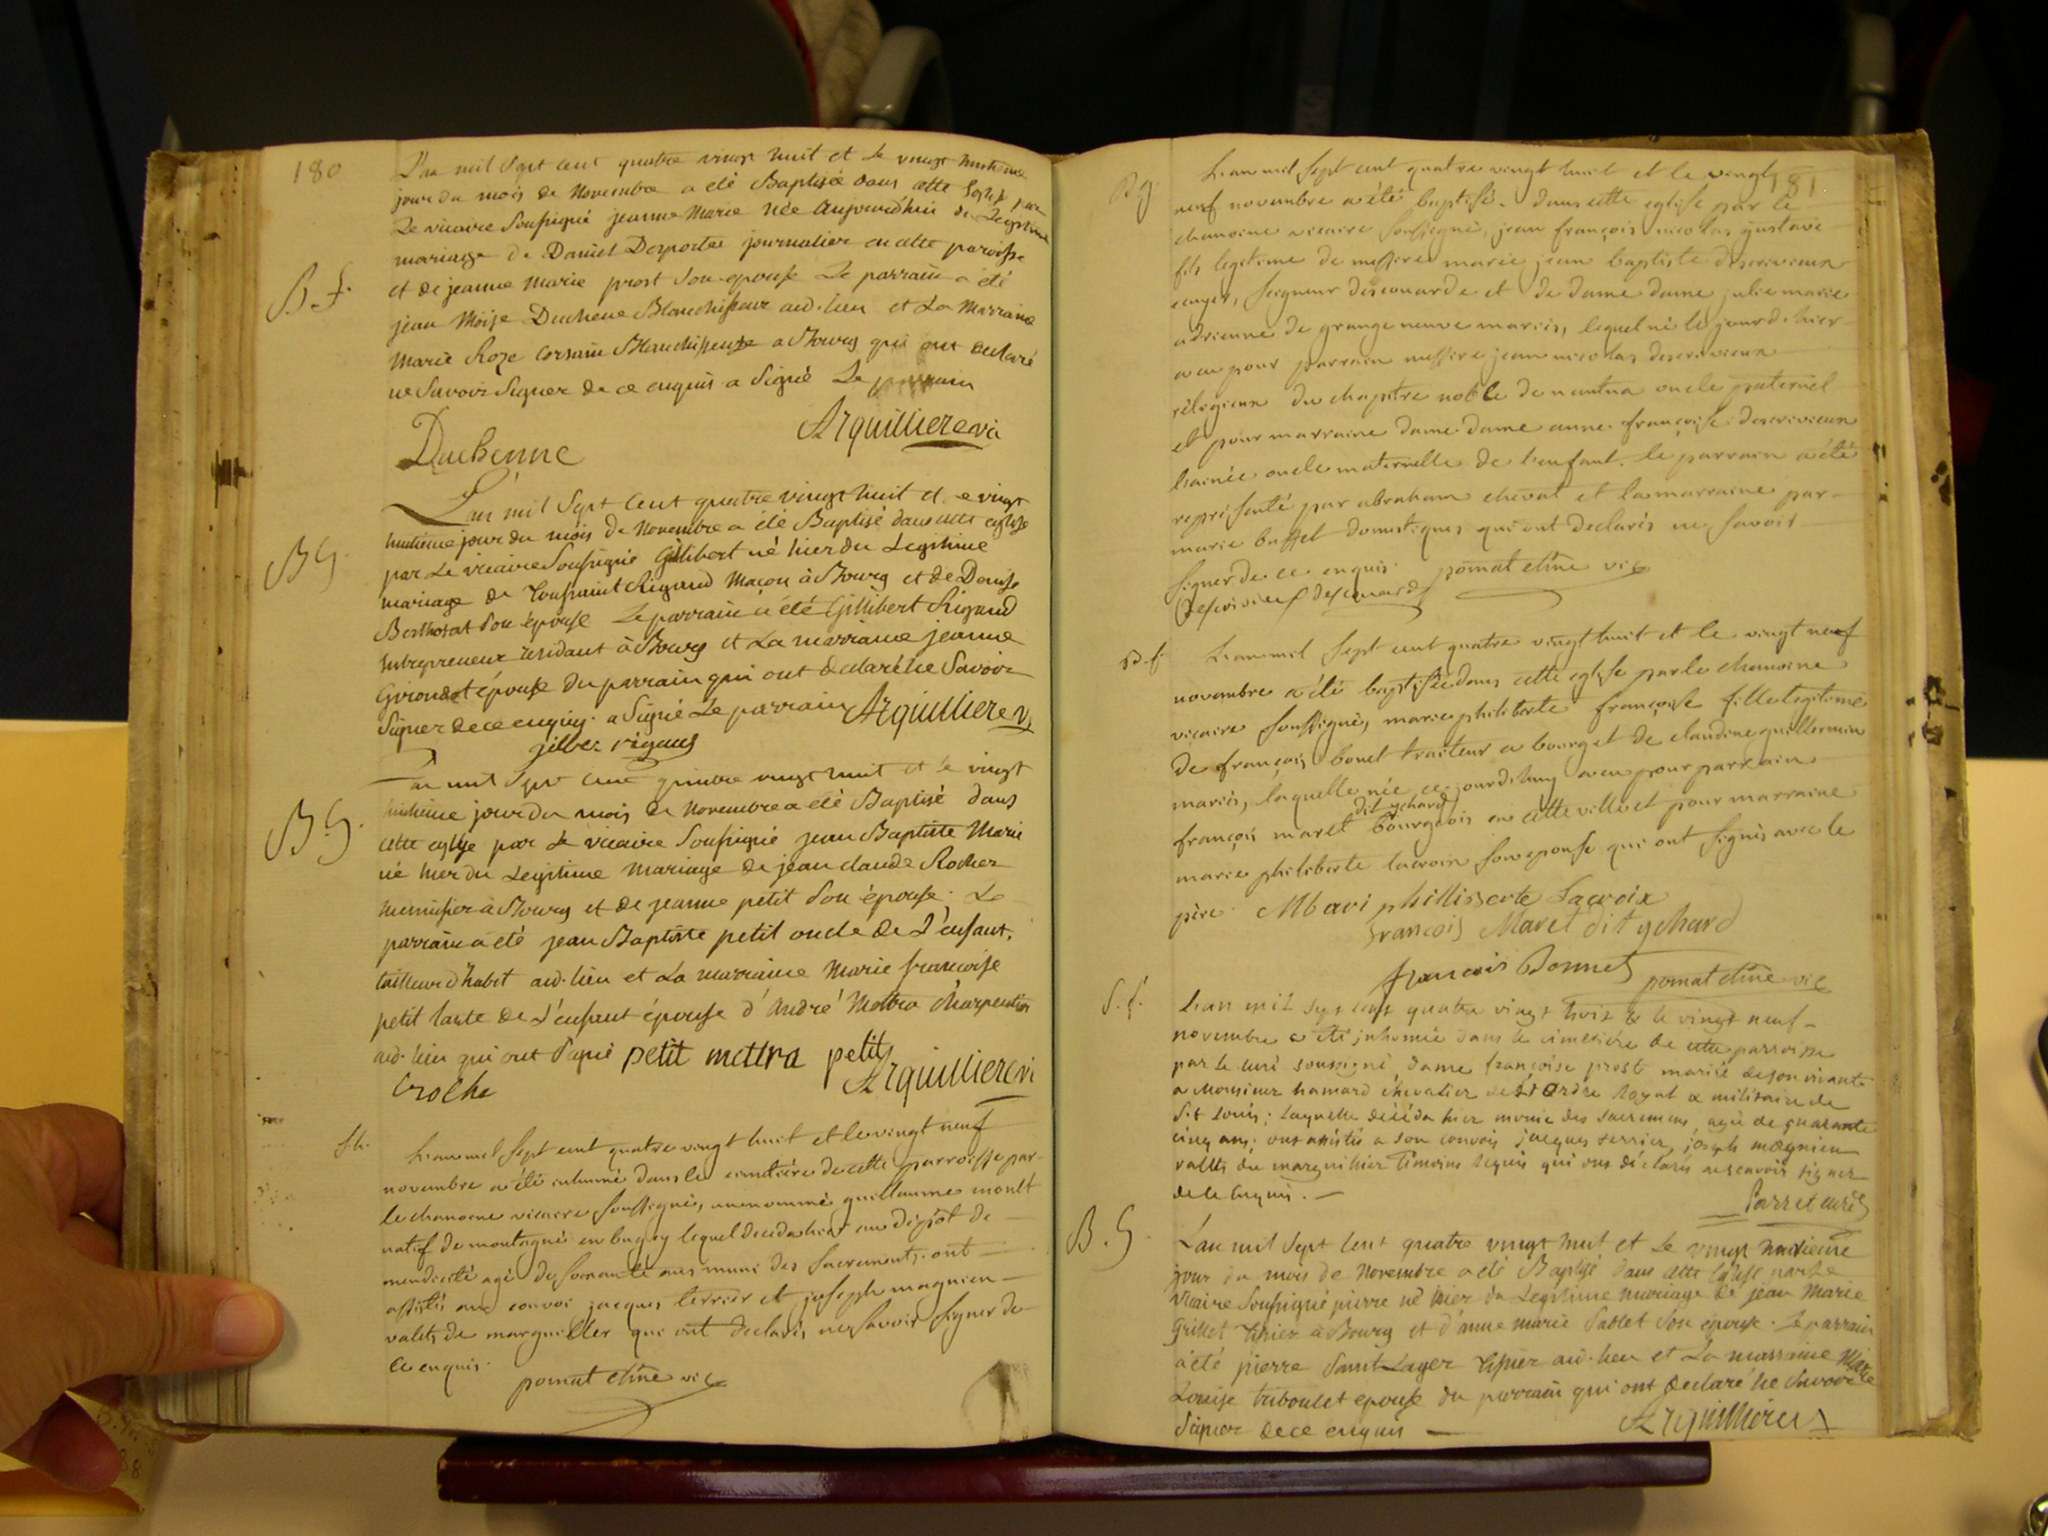 180
L'an mil Sept Cent quatre vingt huit et le vingt huitieme
jour du mois de Novembre a été Baptisée dans cette Eglise par
Le vicaire Soussigné jeanne Marie née Aujourd'hui du Légitime
mariage de Daniel Desportes journalier en cette paroisse
B. f.
et de jeanne Marie prost Son epouse Le parrain a été
jean Moïse Duchene Blanchisseur aud. lieu et La Marraine
Marie Roze Corsain Blanchisseuse a Bourg qui ont declaré
ne Savoir Signer de ce enquis a Signé Le parrain
Arquilliere vi
Duchenne
L'an mil Sept Cent quatre vingt huit et le vingt
huitieme jour du mois de Novembre a été Baptisé dans cette eglise
B G.
par Le vicaire Soussigné Gilibert né hier du Legitime
mariage de Toussaint Rigaud Maçon à Bourg et de Denise
Berthozat Son épouse Le parrain a été Gillibert Rigaud
Entrepreneur residant à Bourg et La marraine jeanne
Girondet épouse du parrain qui ont declaré ne Savoir
Signer de ce enquis. a Signé Le parrain Arquilliere v
jilber rigaud
L'an mil Sept Cent quatre vingt huit et le vingt
huitieme jour du mois de Novembre a été Baptisé dans
B. G.
cette eglise par Le vicaire Soussigné jean Baptiste Marie
né hier du Légitime Mariage de jean claude Rocher
Menuisier à Bourg et de jeanne petit Son épouse. Le
parrain a été jean Baptiste petit oncle de L'enfant,
tailleur d'habit aud. lieu et La marraine Marie françoise
petit tante de L'enfant épouse d'André Mettra Charpentier
aud. lieu qui ont Signé petit mettra petit
Croche Arquilliere vi
S. h.
L'an mil sept cent quatre vingt huit et le vingt neuf
novembre a été inhumé dans le cimetière de cette parroisse par
le chanoine vicaire soussigné, un nommé guillaume moult
natif de montagnié en bugey lequel deceda hier au dépôt de
mendicité agé de soixante ans muni des sacrements, ont
assisté au convoi jacques terrier et joseph magnien
valets de marguiller qui ont declarés ne savoir signer de
ce enquis.
pomat chne vic
181
B g.
L'an mil sept cent quatre vingt huit et le vingt
neuf novembre a été baptisé dans cette eglise par le
chanoine vicaire soussigné, jean françois nicolas gustave
fils legitime de messire marie jean baptiste descrivieux
ecuyer, seigneur descouarde et de dame dame julie marie
adrienne de grange neuve mariés, lequel né le jour d'hier
a eu pour parrain messire jean nicolas descrivieux
religieux du chapitre noble de nantua oncle paternel
et pour marraine dame dame anne françoise descrivieux
l'ainée oncle maternelle de l'enfant. le parrain a été
représenté par abraham cheval et la marraine par
marie buffet domestiques qui ont declarés ne savoir
signer de ce enquis. pomat chne vic
Descrivieux descouardes
B. f.
L'an mil sept cent quatre vingt huit et le vingt neuf
novembre a été baptisée dans cette eglise par le chanoine
vicaire soussigné, marie philiberte françoise fille legitime
de françois bonet traiteur a bourg et de claudine guillermin
mariés, laquelle née ce jourdhuy a eu pour parrain
dit ychard
françois maret bourgeois en cette ville et pour marraine
marie philiberte lacroix son epouse qui ont signés avec le
père. Mari phillisserte Lacroix
François Maret dit ychard
francois Bonnet pomat chne vic
S. f.
L'an mil sept cent quatre vingt huit & le vingt neuf
novembre a été inhumée dans le cimetière de cette parroisse
par le curé soussigné, dame françoise prost mariée de son vivant
a Monsieur hamard chevalier de l'ordre Royal & militaire de
St Louis; laquelle décéda hier munie des sacremens, agée de quarante
cinq ans; ont assistés a son convois jacques terrier, joseph magnien
vallets du marguillier témoins requis qui ont déclarés ne scavoir signer
de ce enquis.
Parret curé
B. G.
L'an mil Sept Cent quatre vingt huit et Le vingt neuvieme
jour du mois de Novembre a été Baptisé dans cette Eglise par Le
Vicaire Soussigné pierre né hier du Legitime mariage de jean Marie
Grillet Tisier à Bourg et d'anne marie Sablet Son épouse. Le parrain
a été pierre Saint Lager Tisier aud. lieu et La marraine Marie
Louise triboulet épouse du parrain qui ont declaré ne Savoir
Signer de ce enquis Arquilliere v